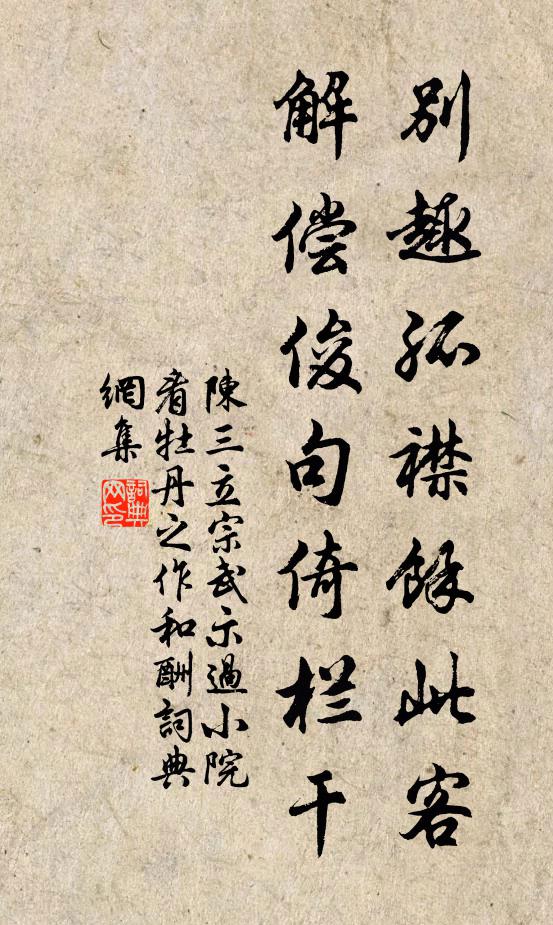 別趣孤襟餘此客
解偿俊句倚栏干
陳三立宗武示過小院
看牡丹之作和酬詞典
網集
詞典
网印